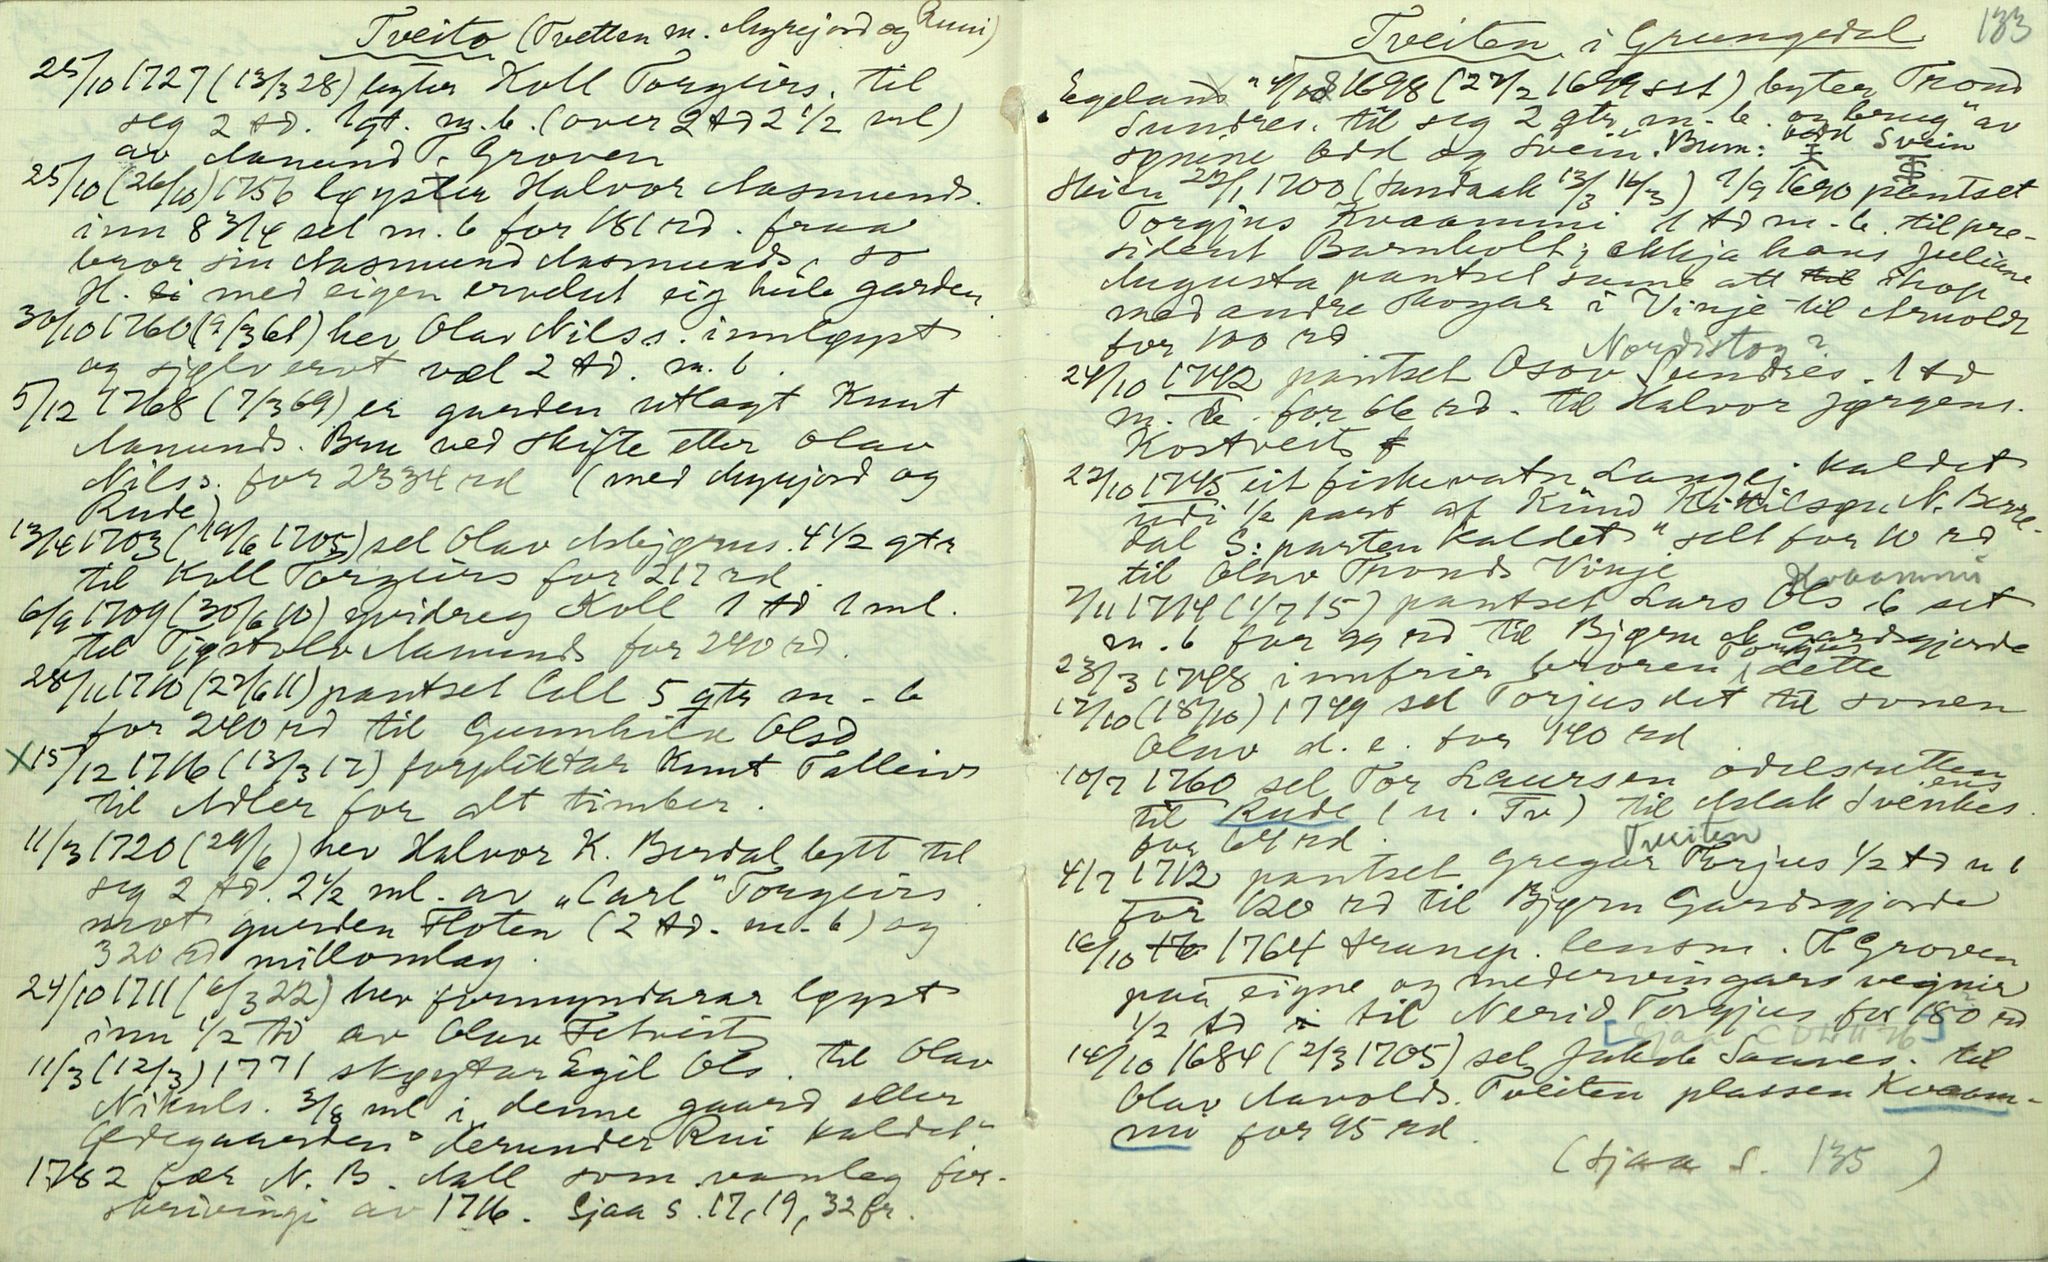 Tveito (Tvetten m. Myrejord og Ruui)
25/10 1727 (13/3 28) byter Koll Torgeirs. til
seg 2 td. 1 gt. m. b. (over 2 td 2 1/2 ml)
av Aamund T. Groven
25/10 (26/10) 1756 løyser Halvor Aasmunds.
inn 8 3/4 set m. b for 181 rd. fraa
bror sin Aasmund Aasmunds, so
H. med eigen ervelut eig heile garden
30/10 1760 (9/3 61) hev Olav Nilss. innløyst
og sjølv ervt vel 2 td. m. b.
5/12 1768 (7/3 69) er garden utlagt Knut
Aamunds. Bru ved skifte etter Olav
Nilss. for 2334 rd (med Myrejord og
Rude)
13/4 1703 (19/6 1705) sel Olav Asbjørns. 4 1/2 gtr
til Koll Torgeirs for 217 rd.
6/9 1709 (30/6 10) yvidreg Koll 1 td 1 ml.
til Tjøstolv Aamunds for 240 rd.
28/11 1710 (22/6 11) pantset Coll 5 gtr m. b
for 240 rd til Gunnhild Olsd
X 15/12 1716 (13/3 17) forpliktar Knut Talleivs
til Adler for alt timber.
11/3 1720 (29/6) hev Halvor K. Berdal bytt til
seg 2 td. 2 1/2 ml. av „Carl" Torgeirs.
mot garden Floten (2 td. m. b) og
320 rd millomlag.
24/10 1711 (6/3 22) hev formyndarar løyst
inn 1/2 td av Olav Tetveit
11/3 (12/3) 1771 skøytar Egil Ols. til Olav
Nikuls. 3/8 ml i „denne gaard eller
Ødegaarden derunder Rui kaldet"
1782 fær N. B. Aall som vanleg for-
skrivingi av 1716. Sjaa s. 17, 19, 32 fr.
133
Tveiten i Grungedal
Egeland 4/10 1698 (27/2 1699 sst) byter Trond
Sundres. til seg 2 gtr m. b. og brug" av
synine Odd og Svein. Bum: Odd Svein
Skien 22/1 1700 (Sandaak 13/3 16/3) 7/9 1690 pantset
Torgjus Kvaammi 1 td m. b. til pre-
sident Barnholt; ekkja hans Juliane
Augusta pantset same att ihop
med andre skogar i Vinje til Arnoldt
for 100 rd
Nordistog?
24/10 1742 pantset Osov Sundres. 1 td
m. b. for 66 rd. til Halvor Jørgens.
Kostveit
22/10 1745 eit fiskevatn Langej kaldet
udi 1/2 part af Knud Kittilsøn N. Berre-
dal S: parten kaldet" selt for 10 rd
til Olav Tronds Vinje
Kvaammi
7/11 1714 (1/7 15) pantset Lars Ols. 6 set
m. b for 99 rd til Bjørn Gardsgjorde
23/3 1748 innfrir broren Torgjus dette
17/10 (18/10) 1749 sel Torjus det til sonen
Olav d. e. for 190 rd
10/7 1760 sel Tor Laursen odelsretten
til Rude (u. Tv) til Aslak Svenkes.
for 64 rd.
Tveiten
4/7 1712 pantset Gregar Torjus 1/2 td m b
for 120 rd til Bjørn Gardsgjorde
16/10 1764 transp. lensm. H Groven
paa eigne og medervingars vegnir
1/2 td til Nerid Torgjus for 180 rd
14/10 1684 (2/3 1705) sel Jakob Saaves. til
Olav Aavolds. Tveiten plassen Kvaam-
mi for 95 rd.
(Sjaa s. 135)